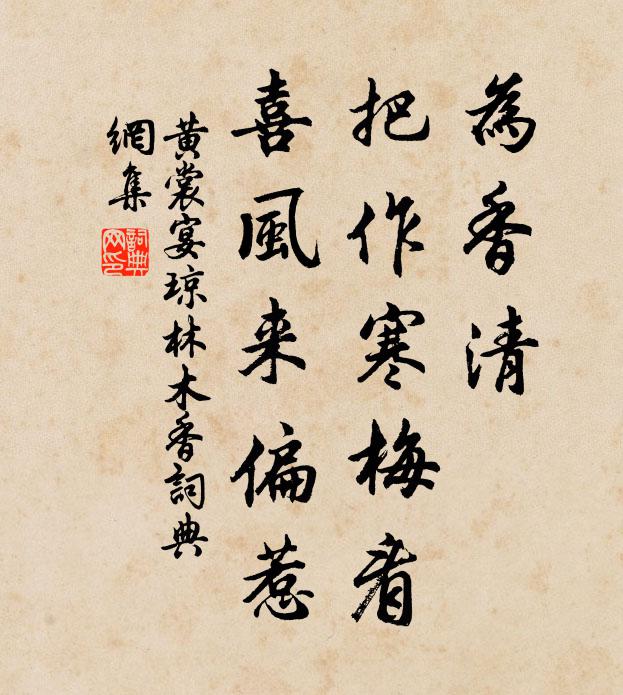 為香清
把作寒梅看
喜風来偏惹
黄裳宴琼林木香詞典
網集
詞典网印